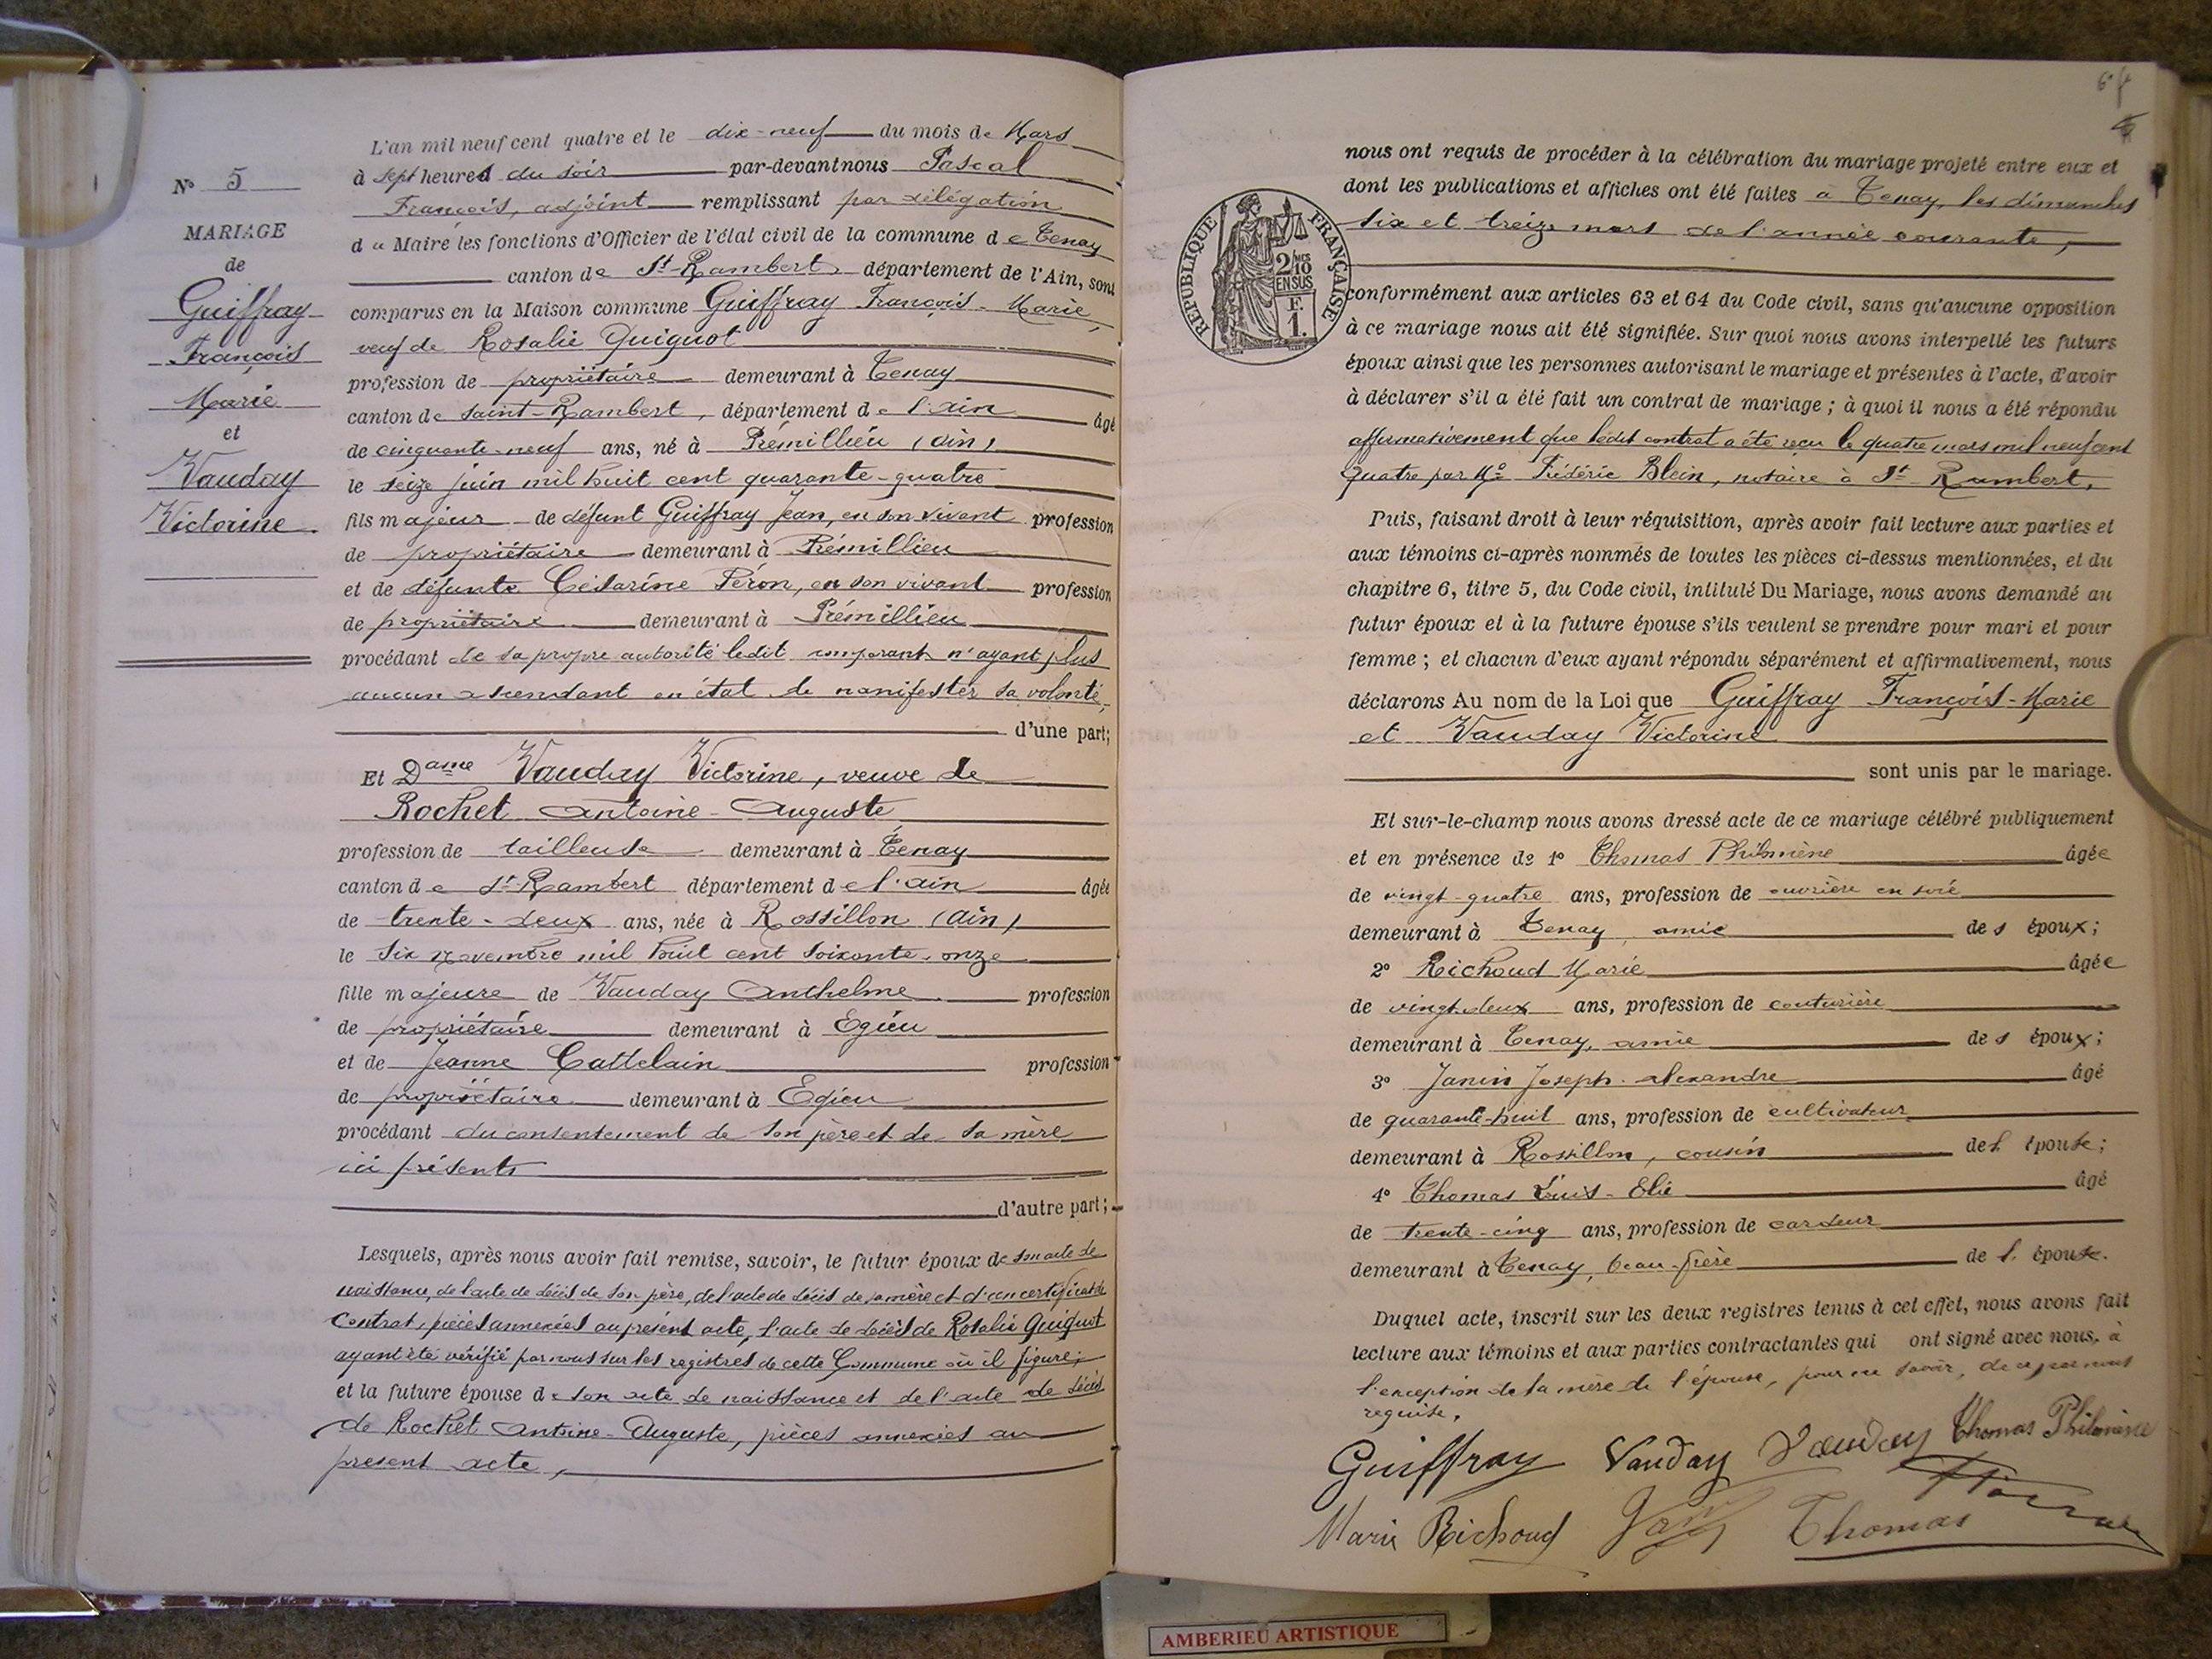 N° 5
MARIAGE
de
Guiffray
François
Marie
et
Vauday
Victorine
L'an mil neuf cent quatre et le dix-neuf du mois de Mars
à sept heures du soir par-devant nous Pascal
François, adjoint remplissant par délégation
du Maire les fonctions d'Officier de l'état civil de la commune de Tenay
canton de St-Rambert département de l'Ain, sont
comparus en la Maison commune Guiffray François-Marie,
veuf de Rosalie Quiquot
profession de propriétaire demeurant à Tenay
canton de Saint-Rambert, département de l'ain âgé
de cinquante-neuf ans, né à Prémillieu (ain)
le seize juin mil huit cent quarante-quatre
fils majeur de défunt Guiffray Jean, en son vivant profession
de propriétaire demeurant à Prémillieu
et de défunte Césarine Péron, en son vivant profession
de propriétaire demeurant à Prémillieu
procédant de sa propre autorité ledit comparant n'ayant plus
aucun ascendant en état de manifester sa volonté,
d'une part;
Et Dame Vauday Victorine, veuve de
Rochet Antoine-Auguste
profession de tailleuse demeurant à Tenay
canton de St-Rambert département de l'ain âgée
de trente-deux ans, née à Rossillon (ain)
le six novembre mil huit cent soixante-onze
fille majeure de Vauday Anthelme profession
de propriétaire demeurant à Egieu
et de Jeanne Cattelain profession
de propriétaire demeurant à Egieu
procédant du consentement de son père et de sa mère
ici présents
d'autre part;
Lesquels, après nous avoir fait remise, savoir, le futur époux de son acte de
naissance, de l'acte de décès de son père, de l'acte de décès de sa mère et d'un certificat de
contrat, pièces annexées au présent acte, l'acte de décès de Rosalie Quiquot
ayant été vérifié par nous sur les registres de cette Commune où il figure;
et la future épouse de son acte de naissance et de l'acte de décès
de Rochet Antoine-Auguste, pièces annexées au
présent acte,
nous ont requis de procéder à la célébration du mariage projeté entre eux et
dont les publications et affiches ont été faites à Tenay, les dimanches
six et treize mars de l'année courante,
RÉPUBLIQUE FRANÇAISE
2/MES
10
EN SUS
F.
1.
conformément aux articles 63 et 64 du Code civil, sans qu'aucune opposition
à ce mariage nous ait été signifiée. Sur quoi nous avons interpellé les futurs
époux ainsi que les personnes autorisant le mariage et présentes à l'acte, d'avoir
à déclarer s'il a été fait un contrat de mariage; à quoi il nous a été répondu
affirmativement que ledit contrat a été reçu le quatre mars mil neuf cent
quatre par Me Frédéric Blein, notaire à St-Rambert.
Puis, faisant droit à leur réquisition, après avoir fait lecture aux parties et
aux témoins ci-après nommés de toutes les pièces ci-dessus mentionnées, et du
chapitre 6, titre 5, du Code civil, intitulé Du Mariage, nous avons demandé au
futur époux et à la future épouse s'ils veulent se prendre pour mari et pour
femme; et chacun d'eux ayant répondu séparément et affirmativement, nous
déclarons Au nom de la Loi que Guiffray François-Marie
et Vauday Victorine
sont unis par le mariage.
Et sur-le-champ nous avons dressé acte de ce mariage célébré publiquement
et en présence de 1° Thomas Philomène âgée
de vingt-quatre ans, profession de ouvrière en soie
demeurant à Tenay, amie des époux;
2° Richoud Marie âgée
de vingt-deux ans, profession de couturière
demeurant à Tenay, amie des époux;
3° Janin Joseph-alexandre âgé
de quarante-huit ans, profession de cultivateur
demeurant à Rossillon, cousin de l'épouse;
4° Thomas Louis-Elie âgé
de trente-cinq ans, profession de cardeur
demeurant à Tenay, beau-frère de l'épouse.
Duquel acte, inscrit sur les deux registres tenus à cet effet, nous avons fait
lecture aux témoins et aux parties contractantes qui ont signé avec nous, à
l'exception de la mère de l'épouse, pour ne savoir, de ce par nous
requise.
Guiffray Vauday Vauday Thomas Philomène
Marie Richoud Thomas
AMBERIEU ARTISTIQUE